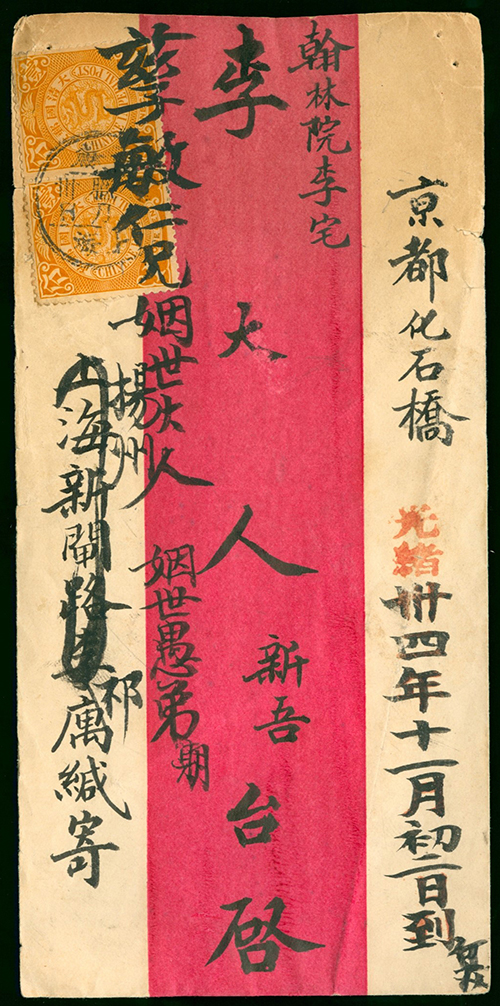 京都化石橋
光緒卅四年十一月初二日到
翰林院李宅
李大人新吾台啓
敏仁兄姻世大人
姻世愚弟期
揚州
祁
上海新閘路
寓緘寄